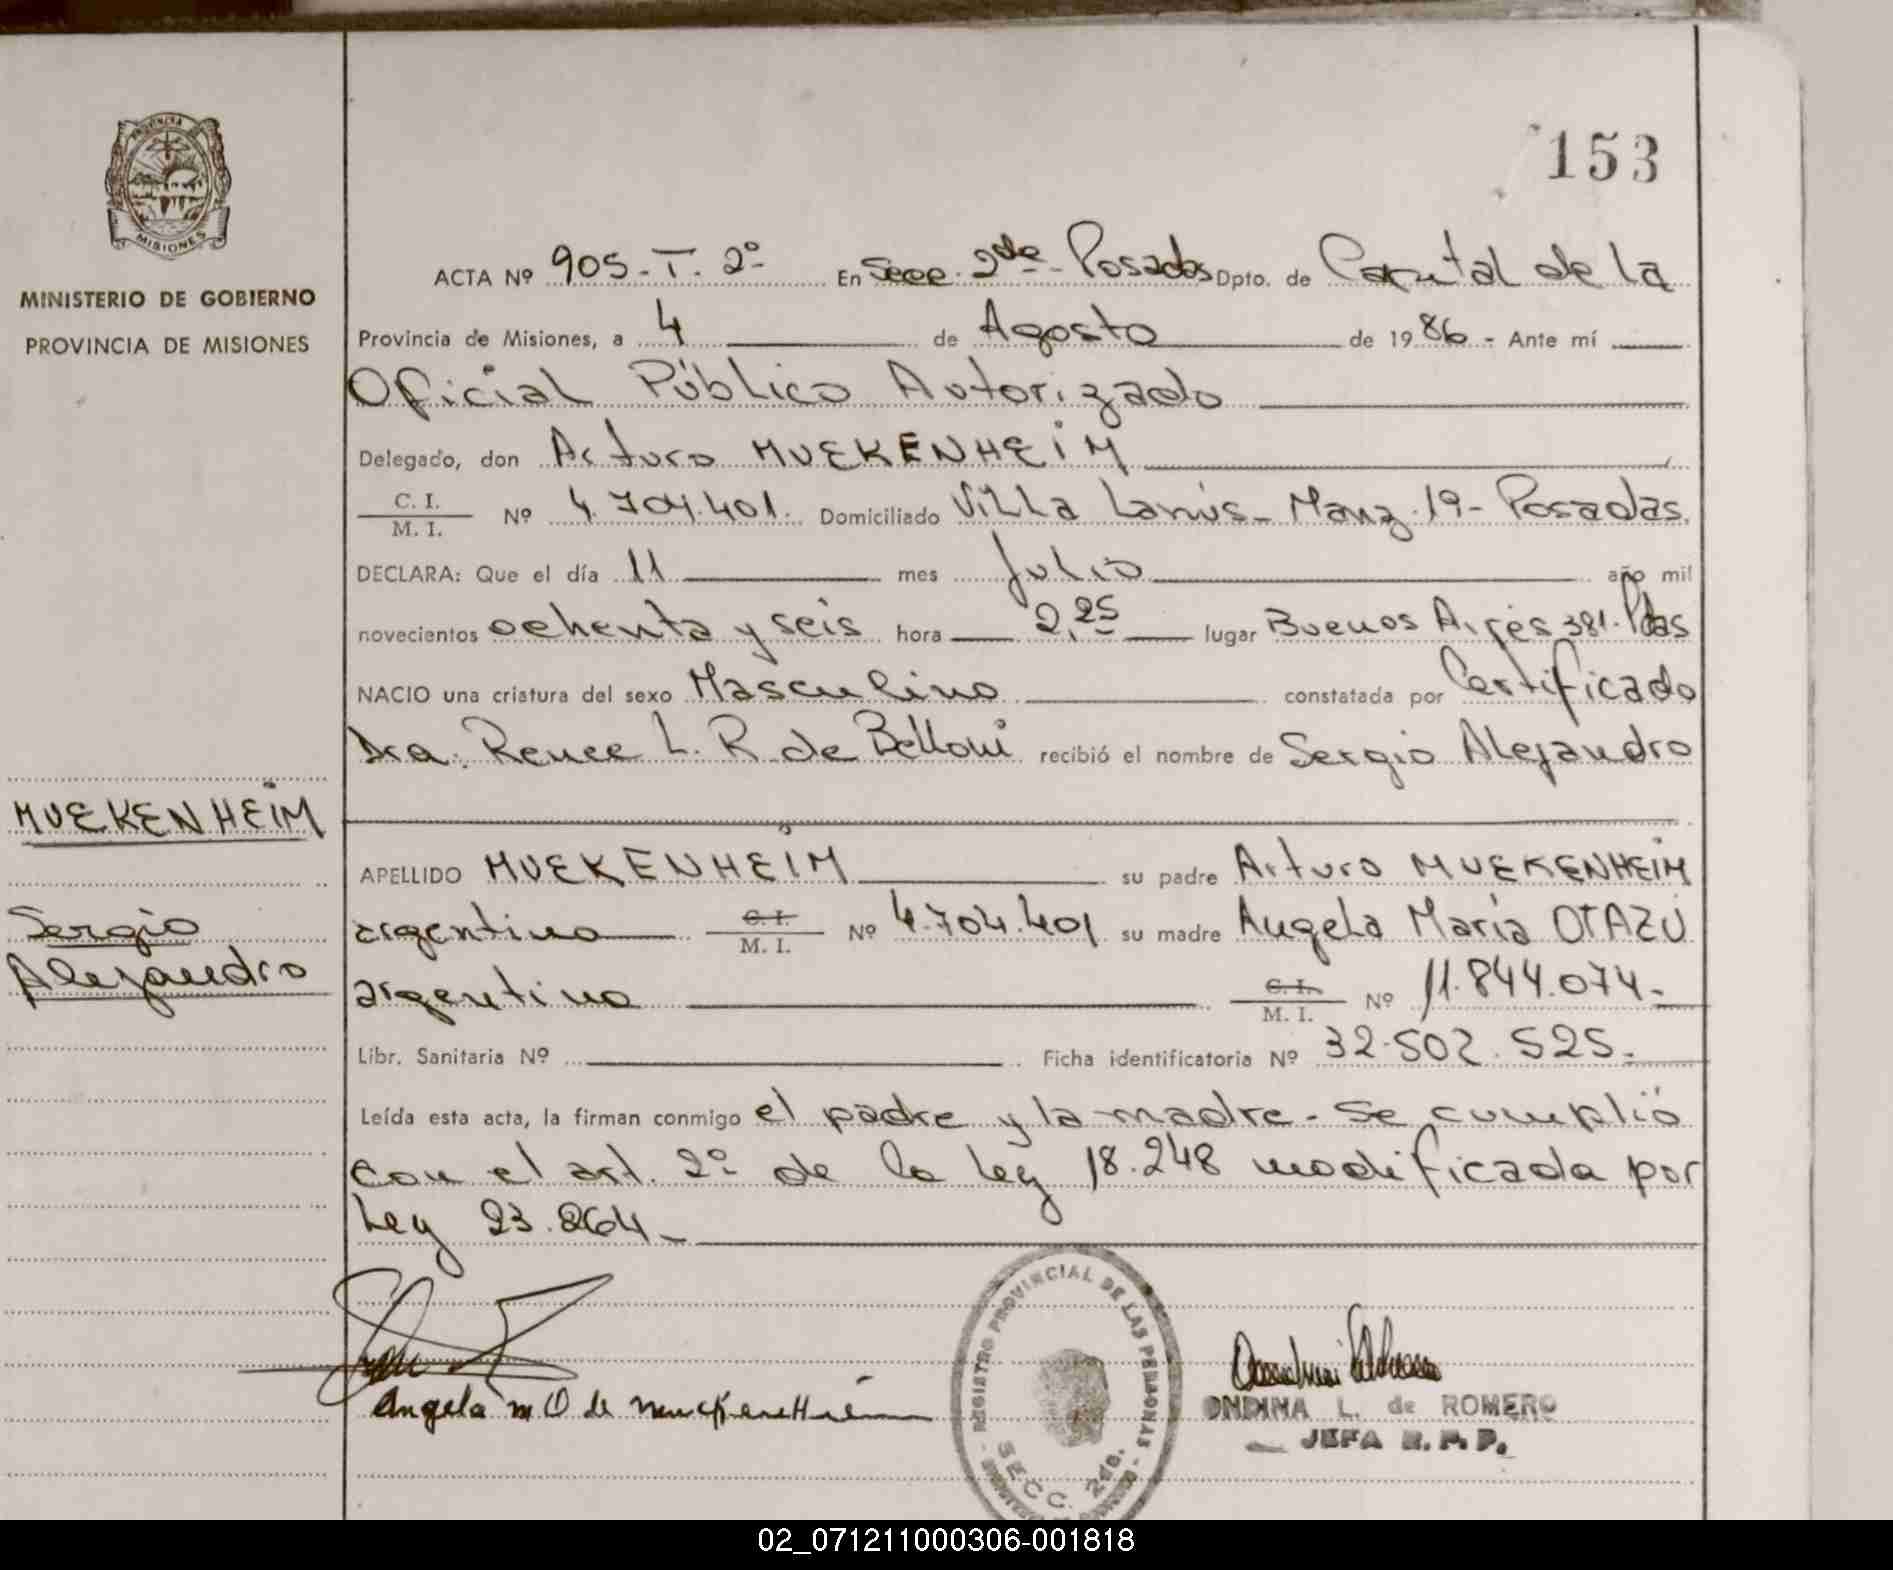 PROVINCIA
MISIONES
MINISTERIO DE GOBIERNO
PROVINCIA DE MISIONES
MUEKENHEIM
Sergio
Alejandro
153
ACTA Nº 905-T. 2º En Secc. 2da Posadas Dpto. de Capital de La
Provincia de Misiones, a 4 de Agosto de 1986.- Ante mí
Oficial Público Autorizado
Delegado, don Arturo MUEKENHEIM
C. I.
M. I. Nº 4.704.401. Domiciliado Villa Lanús- Manz. 19- Posadas.
DECLARA: Que el día 11 mes Julio año mil
novecientos ochenta y seis hora 2,25 lugar Buenos Aires 381. Pdas
NACIO una criatura del sexo Masculino constatada por Certificado
Dra. Renee L. R. de Belloni recibió el nombre de Sergio Alejandro
APELLIDO MUEKENHEIM su padre Arturo MUEKENHEIM
argentino C. I. M. I. Nº 4.704.401 su madre Angela María OTAZÚ
argentina C. I. M. I. Nº 11.844.074.-
Libr. Sanitaria Nº Ficha identificatoria Nº 32.502.525.-
Leída esta acta, la firman conmigo el padre y la madre.- Se cumplió
con el art. 2º de la ley 18.248 modificada por
Ley 23.264.-
Angela m O de
REGISTRO PROVINCIAL DE LAS PERSONAS
SECC. 2da.
ONDINA L. de ROMERO
JEFA R. P. P.
02_071211000306-001818